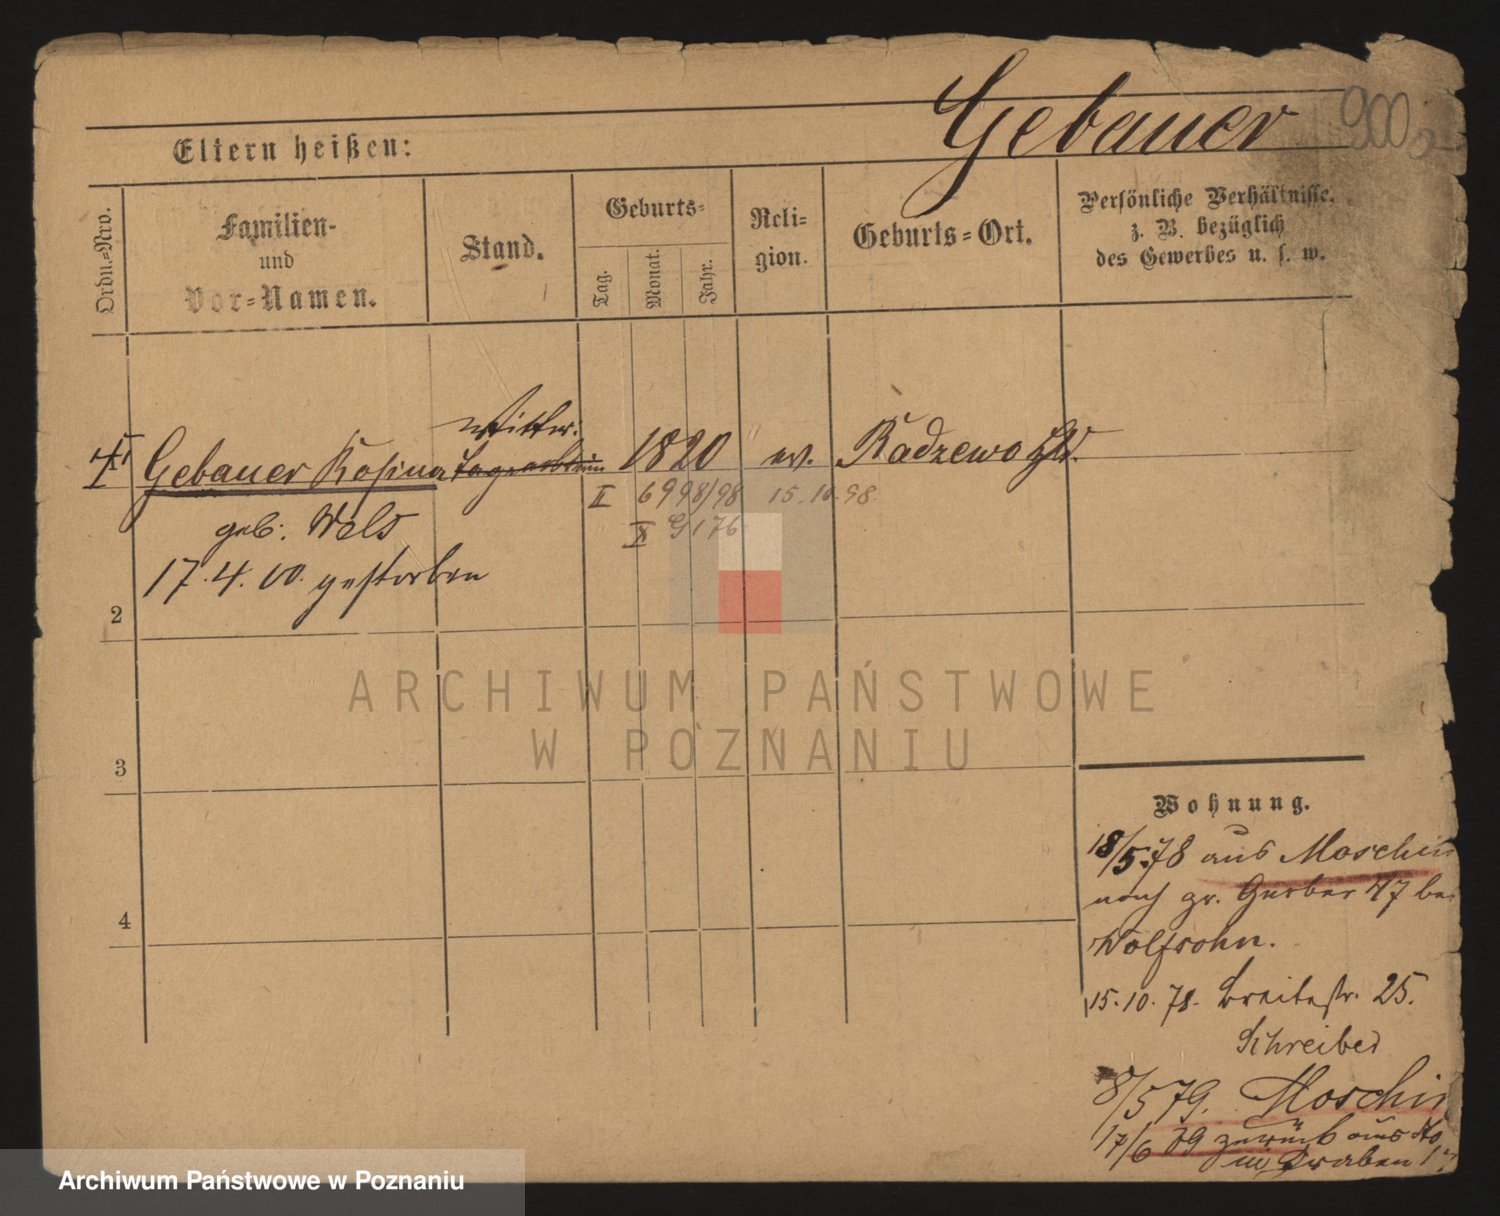 Gebauer
900
Eltern heißen:
Ordn.=Nro.
Familien-
und
Vor=Namen.
Stand.
Geburts=
Tag.
Monat.
Jahr.
Reli=
gion.
Geburts=Ort.
Persönliche Verhältnisse,
z. B. bezüglich
des Gewerbes u. s. w.
Wittw.
Gebauer Rosina 1820 ev. Radzewo
II 6998/98 15.10.98
geb. Wels
X G 176
17.4.00. gestorben
2
ARCHIWUM PAŃSTWOWE
W POZNANIU
3
4
Wohnung.
18/5.78 aus Moschin
nach gr. Gerber 47 bei
Wolfsohn.
15.10.78. Breitestr. 25.
Schreiber
8/5 79. Moschin
17/6 79 zurück aus Mo
Graben
Archiwum Państwowe w Poznaniu